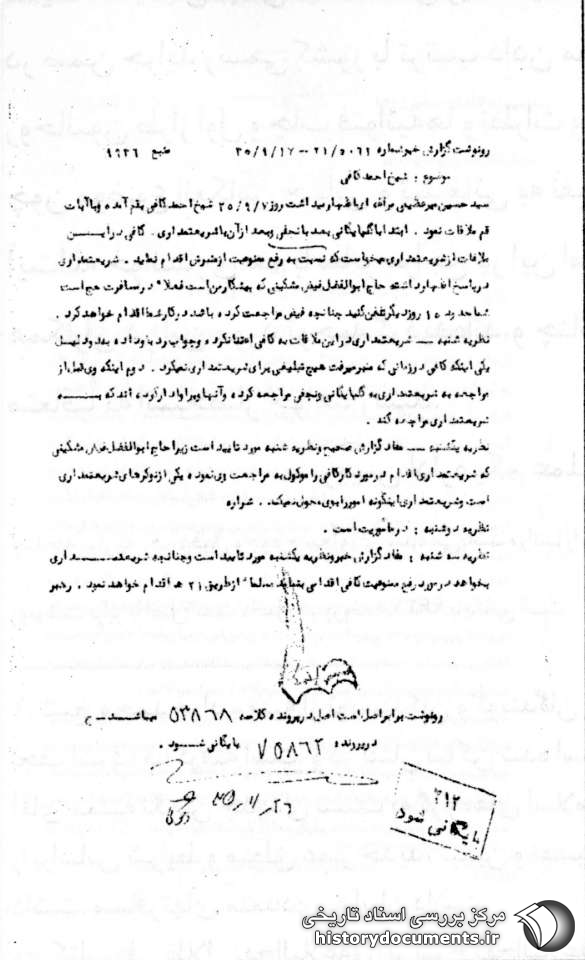 رونوشت گزارش خبر شماره ۲۱/۵۰۶۱ — ۳۵/۹/۱۷ منبع ۹۶۳۶
موضوع : شیخ احمد کافی
سید حسین میرعظیمی مراغه ای اظهار میداشت روز ۳۵/۹/۷ شیخ احمد کافی بقم آمده و با آیات
قم ملاقات نمود . ابتدا با گلپایگانی بعد با نجفی و بعد از آن با شریعتمداری . کافی در ایــن
ملاقات از شریعتمداری میخواست که نسبت به رفع ممنوعیت از منبرش اقدام نماید . شریعتمداری
در پاسخ اظهار داشته حاج ابوالفضل فیض مشکینی که پیشکار من است فعلا" در مسافرت حج است
شما حدود ۱۵ روز دیگر تلفن کنید چنانچه فیض مراجعت کرده باشد در کار شما اقدام خواهد کرد .
نظریه شنبه — شریعتمداری در این ملاقات به کافی اعتنا نکرده و جواب رد باو داده بدو دلیل
یکی اینکه کافی در زمانی که منبر میرفت هیچ تبلیغی برای شریعتمداری نمیکرد . دوم اینکه وی قبل از
مراجعه به شریعتمداری به گلپایگانی و نجفی مراجعه کرده و آنها ویرا وادار کرده اند که بـــه
شریعتمداری مراجعه کند .
نظریه یکشنبه — مفاد گزارش صحیح و نظریه شنبه مورد تایید است زیرا حاج ابوالفضل فیض مشکینی
که شریعتمداری اقدام در مورد کار کافی را موکول به مراجعت وی نموده یکی از نوکرهای شریعتمداری
است و شریعتمداری اینگونه امور را بوی محول نمیکند . شراره
نظریه دوشنبه : در مأموریت است .
نظریه سه شنبه : مفاد گزارش خبر و نظریه یکشنبه مورد تایید است و چنانچه شریعتمـــداری
بخواهد در مورد رفع ممنوعیت کافی اقدامی بنماید مسلما" از طریق ۲۱ هـ اقدام خواهد نمود . رهبر
رونوشت برابر اصل است اصل در پرونده کلاسه ۵۳۸۶۸ میباشــد
در پرونده ۷۵۸۶۲ بایگانی شــود .
۳۵/۱۱/۲۶
۳۱۲
بایگانی شود
مرکز بررسی اسناد تاریخی
historydocuments.ir